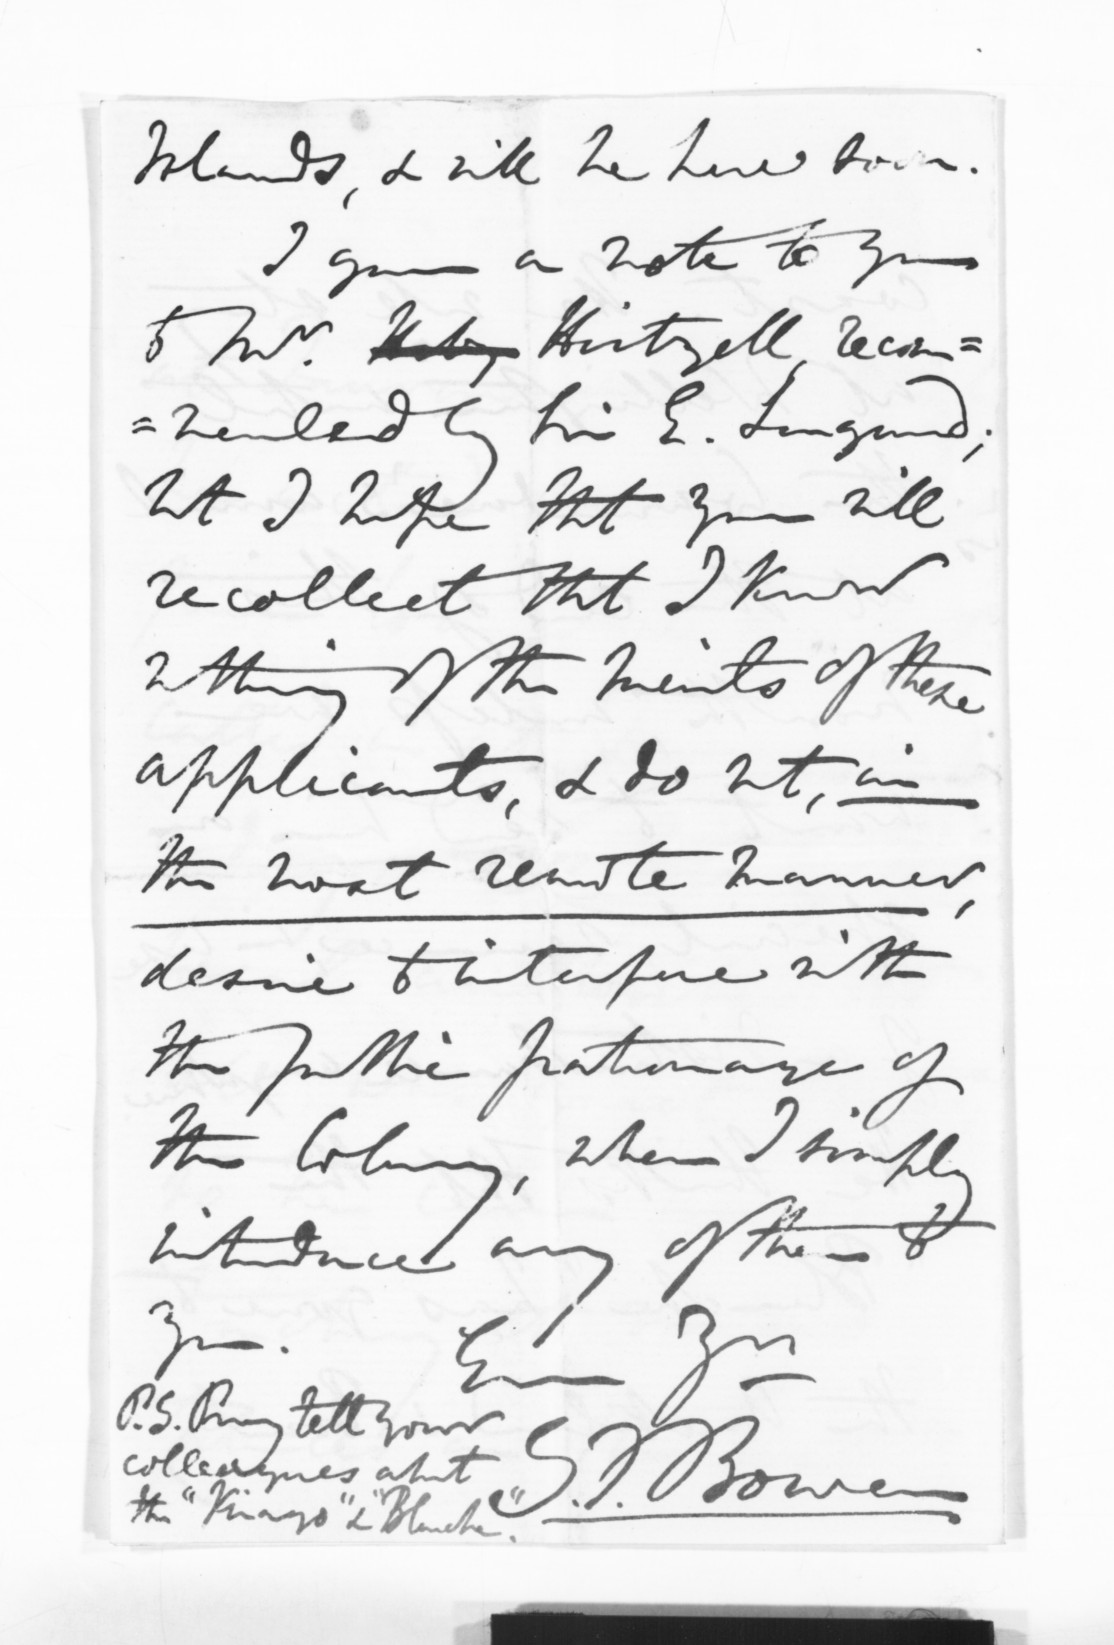 Islands, & will be here soon.
I gave a note to you
to Mr. Hirtzell, recom=
=mended by Sir E. Lugard;
but I hope that you will
recollect that I know
nothing of the merits of these
applicants, & do not, in
the most remote manner,
desire to interfere with
the public patronage of
the Colony, when I simply
introduce any of them to
you.
Ever Yrs
P.S. Pray tell your
colleagues about
the "Virago" & "Blanche".
G.F. Bowen